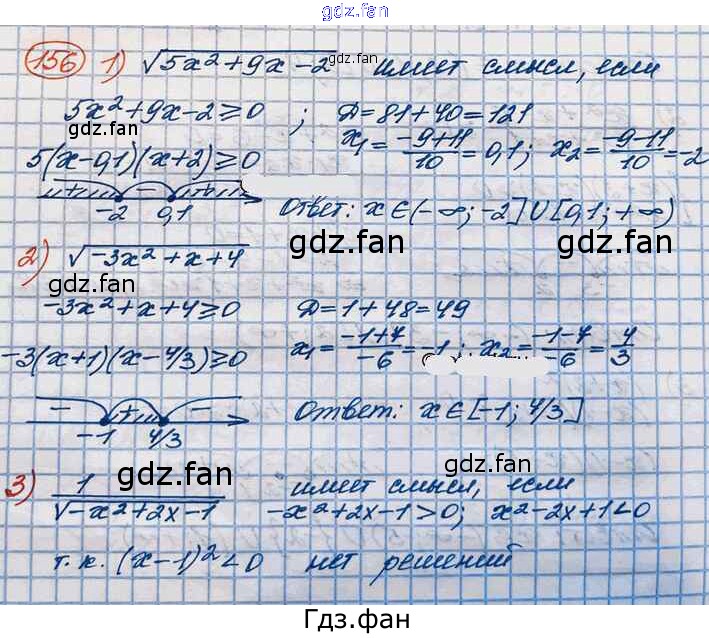 gdz.fan
156 1) √(5x²+9x-2) имеет смысл, если
gdz.fan
5x²+9x-2≥0 ; D=81+40=121
gdz.fan
x₁=(-9+11)/10=0,1; x₂=(-9-11)/10=-2
5(x-0,1)(x+2)≥0
+ - +
-2 0,1 Ответ: x∈(-∞;-2]∪[0,1;+∞)
gdz.fan
2) √(-3x²+x+4)
gdz.fan
-3x²+x+4≥0 D=1+48=49
x₁=(-1+7)/-6=-1; x₂=(-1-7)/-6=4/3
-3(x+1)(x-4/3)≥0
- + -
-1 4/3 Ответ: x∈[-1; 4/3]
gdz.fan
gdz.fan
3) 1/√(-x²+2x-1) имеет смысл, если
-x²+2x-1>0; x²-2x+1<0
т.к. (x-1)²<0 нет решений
gdz.fan
gdz.fan
Гдз.фан